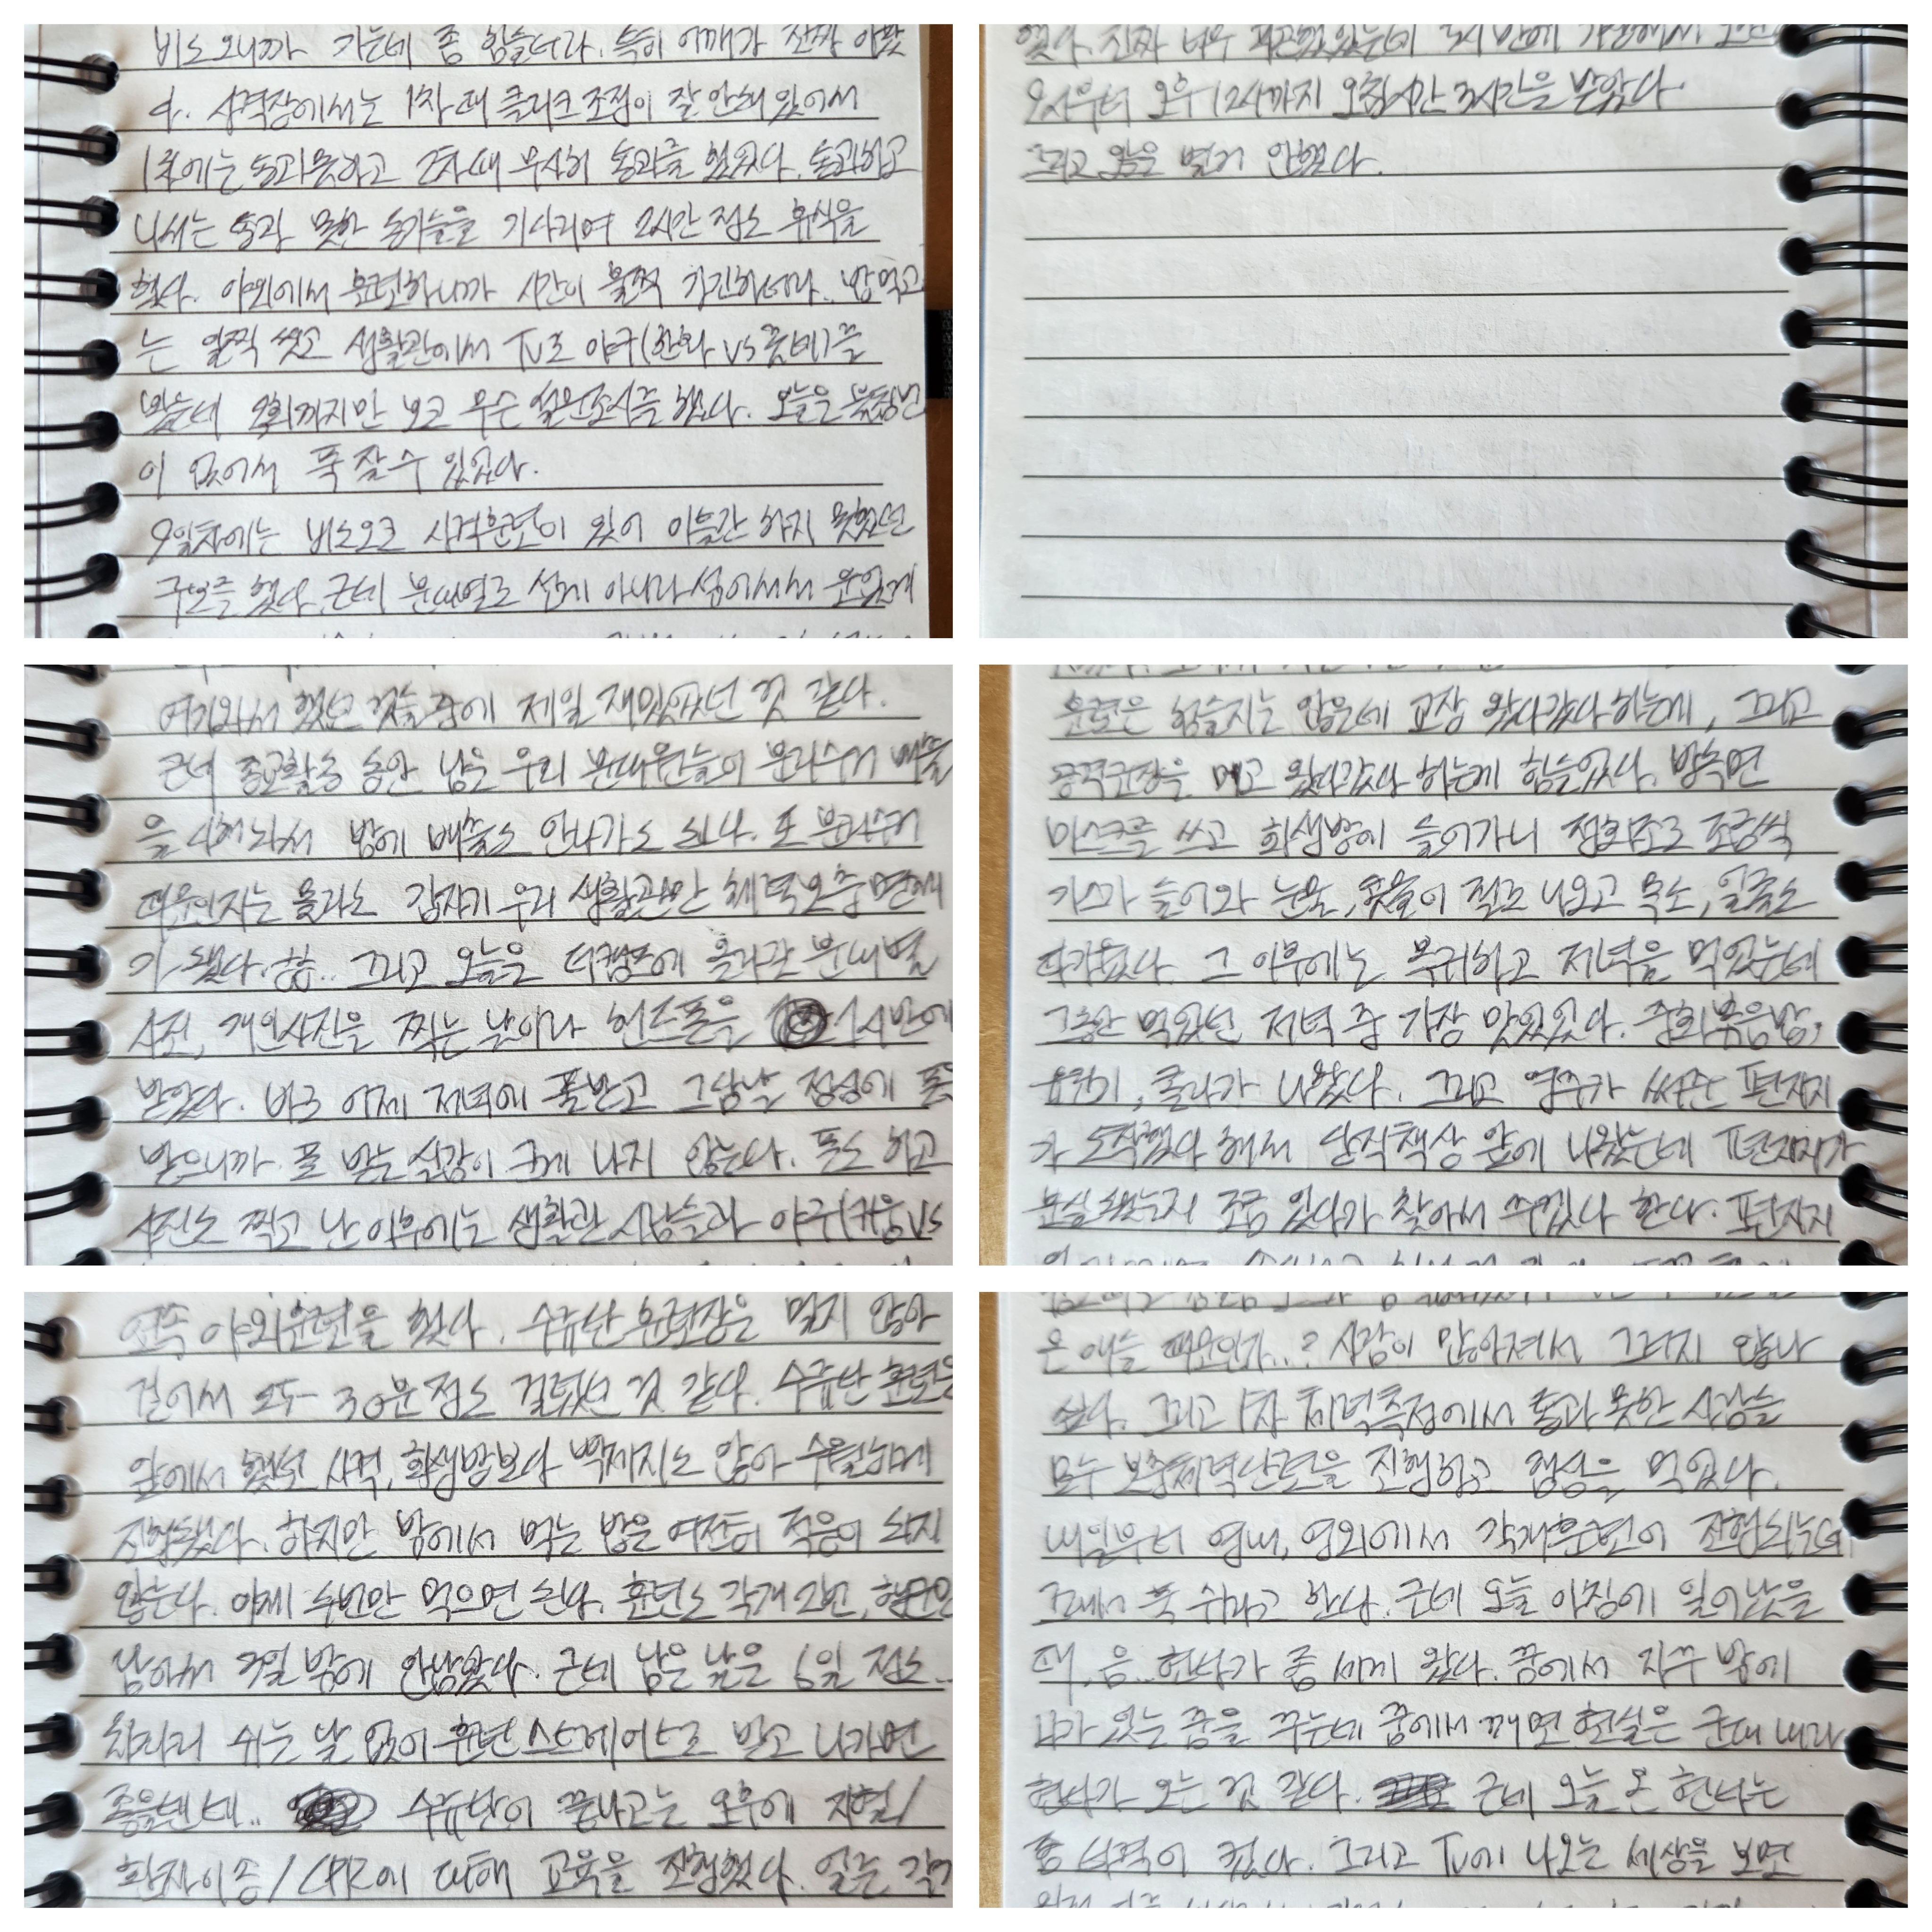 비도 오니까 가는데 좀 힘들더라. 특히 어깨가 진짜 아팠
다. 사격장에서는 1차 때 클리크 조정이 잘 안돼 있어서
1차에는 통과못하고 2차 때 무사히 통과를 했었다. 통과하고
나서는 통과 못한 동기들을 기다리며 2시간 정도 휴식을
했다. 야외에서 훈련하니까 시간이 훌쩍 지나더라. 밥먹고
는 일찍 씻고 생활관에서 TV로 야구(한화 vs 롯데)를
봤는데 9회까지만 보고 무슨 설문조사를 했다. 오늘은 불침번
이 없어서 푹 잘 수 있었다.
9일차에는 비도오고 사격훈련이 있어 이틀간 하지 못했던
구보를 했다. 근데 분대별로 선게 아니라 섞어서서 운있게
했다. 진짜 너무 피곤했었는데
9시부터 오후 12시까지 오침시간 3시간을 받았다.
그리고 오늘은 별거 안했다.
여기와서 했던 것들 중에 제일 재밌었던 것 같다.
근데 종교활동 동안 남은 우리 분대원들이 분리수거 배출
을 다해놔서 밤에 배출도 안나가도 된다. 또 분리수거
때문인지는 몰라도 갑자기 우리 생활관만 체력보충 면제
가 됐다. 굳.. 그리고 오늘은 더캠프에 올라간 분대별
사진, 개인사진을 찍는 날이라 핸드폰을 1시반에
받았다. 바로 어제 저녁에 폰받고 그담날 점심에 폰
받으니까 폰 받는 실감이 크게 나지 않는다. 폰도 하고
사진도 찍고 난 이후에는 생활관 사람들과 야구(키움 vs
훈련은 힘들지는 않은데 교장 왔다갔다 하는게, 그리고
공격군장을 메고 왔다갔다 하는게 힘들었다. 방독면
마스크를 쓰고 화생방에 들어가니 정화조로 조금씩
가스가 들어와 눈물, 콧물이 절로 나오고 목도, 얼굴도
따가웠다. 그 이후에는 복귀하고 저녁을 먹었는데
그동안 먹었던 저녁 중 가장 맛있었다. 중화볶음밥,
유린기, 콜라가 나왔다. 그리고 영주가 써준 편지지
가 도착했다 해서 당직책상 앞에 나왔는데 편지지가
분실됐는지 조금 있다가 찾아서 주겠다 한다. 편지지
연속 야외훈련을 했다. 수류탄 훈련장은 멀지 않아
걸어서 모두 30분 정도 걸렸던 것 같다. 수류탄 훈련은
앞에서 했던 사격, 화생방보다 빡세지도 않아 수월하게
진행됐다. 하지만 밖에서 먹는 밥은 여전히 적응이 되지
않는다. 이제 두번만 먹으면 된다. 훈련도 각개 2번, 행군만
남아서 3일 밖에 안남았다. 근데 남은 날은 6일 정도..
차라리 쉬는 날 없이 훈련 스트레이트로 받고 나가면
좋을텐데.. 수류탄이 끝나고는 오후에 지혈/
환자이송/CPR에 대해 교육을 진행했다. 일단 각개
온 애들 때문인가..? 사람이 많아져서 그러지 않나
싶다. 그리고 1차 체력측정에서 통과 못한 사람들
모두 보충체력단련을 진행하고 점심을 먹었다.
내일부터 영내, 영외에서 각개훈련이 진행되는데
그래서 푹 쉬라고 한다. 근데 오늘 아침에 일어났을
때, 음.. 현타가 좀 세게 왔다. 꿈에서 자꾸 밖에
나가 있는 꿈을 꾸는데 꿈에서 깨면 현실은 군대 내라
현타가 오는 것 같다. 근데 오늘 온 현타는
좀 타격이 컸다. 그리고 TV에 나오는 세상을 보면